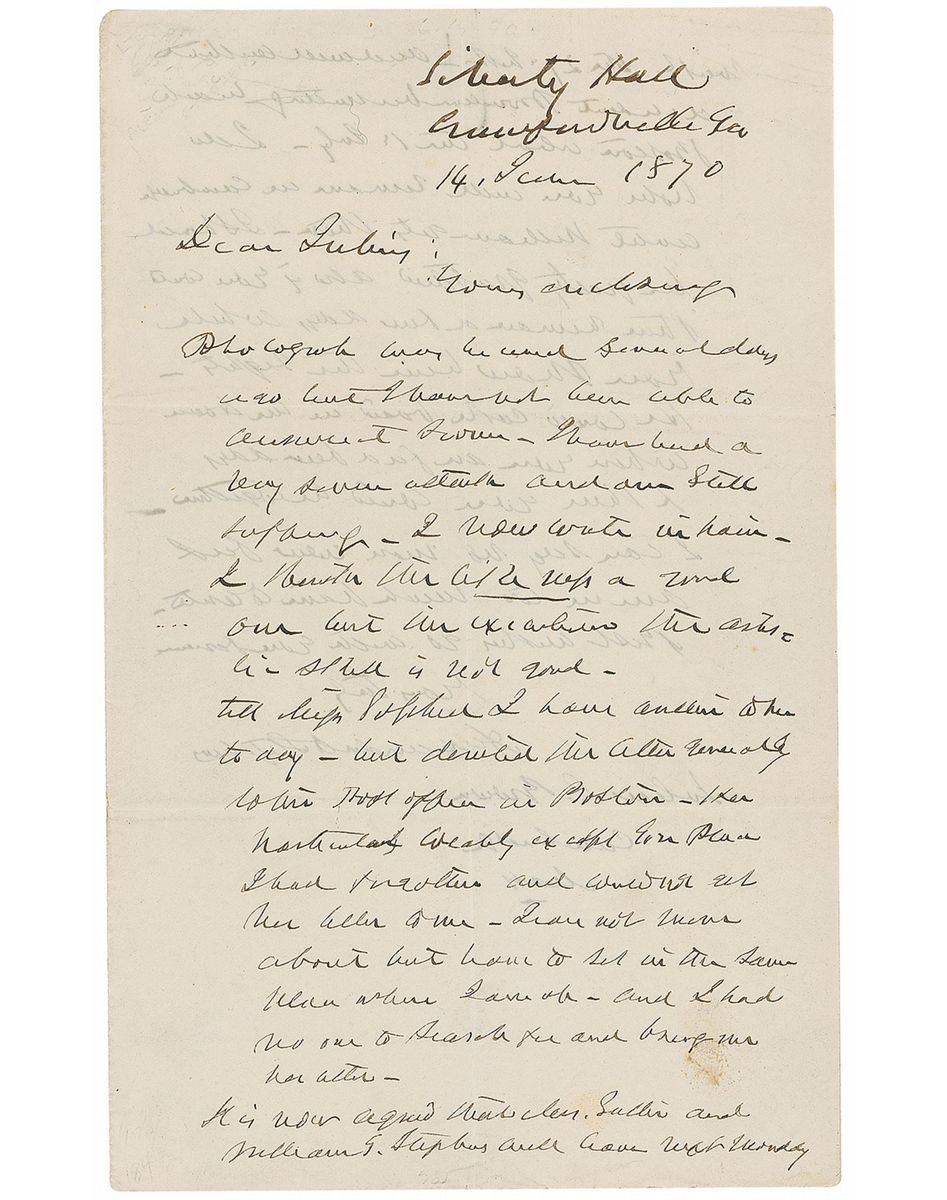 Liberty Hall
Crawfordville Ga
14. June 1870
Dear
Yours enclosing
Photograph was recevd several days
ago but I have not been able to
answer it sooner - I have had a
very severe attack and am still
suffering - I now write in pain -
I think the likeness a good
one but the execution the artis-
tic skill is not good -
tell Miss I have to her
to day - but directed the letter generally
to the Post office in Boston - Her
particular place
I had forgotten and could not get
her letter to me - I can not move
about but have to set in the same
place where I am - and I had
no one to search for and bring me
her letter -
It is now agreed that and
William G. Stephens will leave next Monday